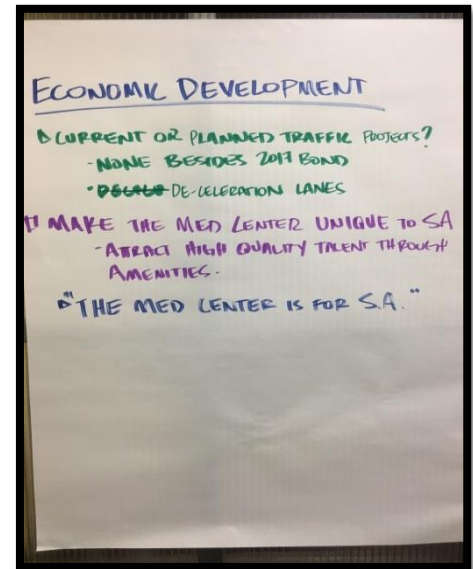 ECONOMIC DEVELOPMENT
CURRENT OR PLANNED TRAFFIC PROJECTS?
- NONE BESIDES 2017 BOND
- DE-CELERATION LANES
MAKE THE MED CENTER UNIQUE TO SA
- ATTRACT HIGH QUALITY TALENT THROUGH
AMENITIES.
"THE MED CENTER IS FOR S.A."